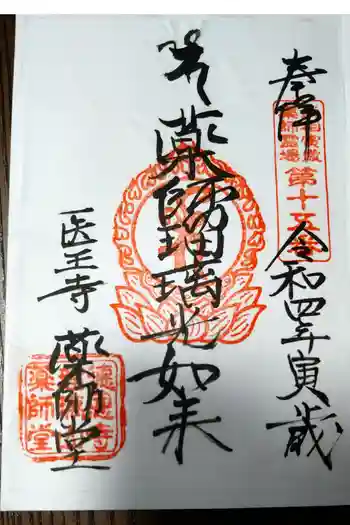 奉拝
令和四年寅歳
薬師瑠璃光如来
医王寺 薬師堂
霊場
第十五番
薬師堂